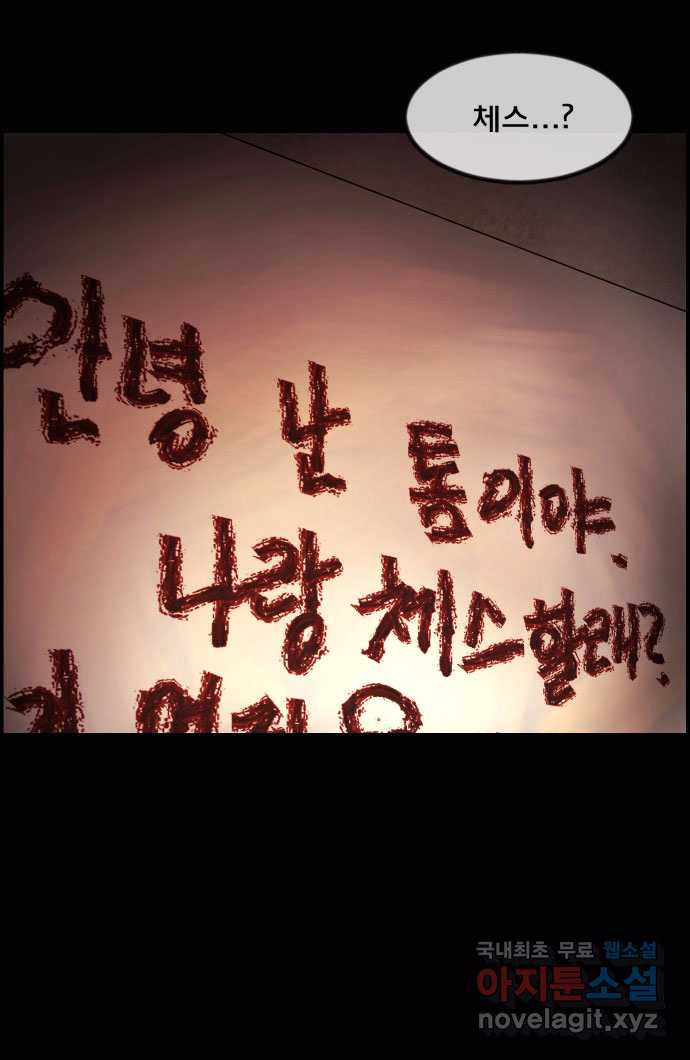 체스...?
안녕 난 톰이야.
나랑 체스할래?
국내최초 무료 웹소설
아지툰소설
novelagit.xyz